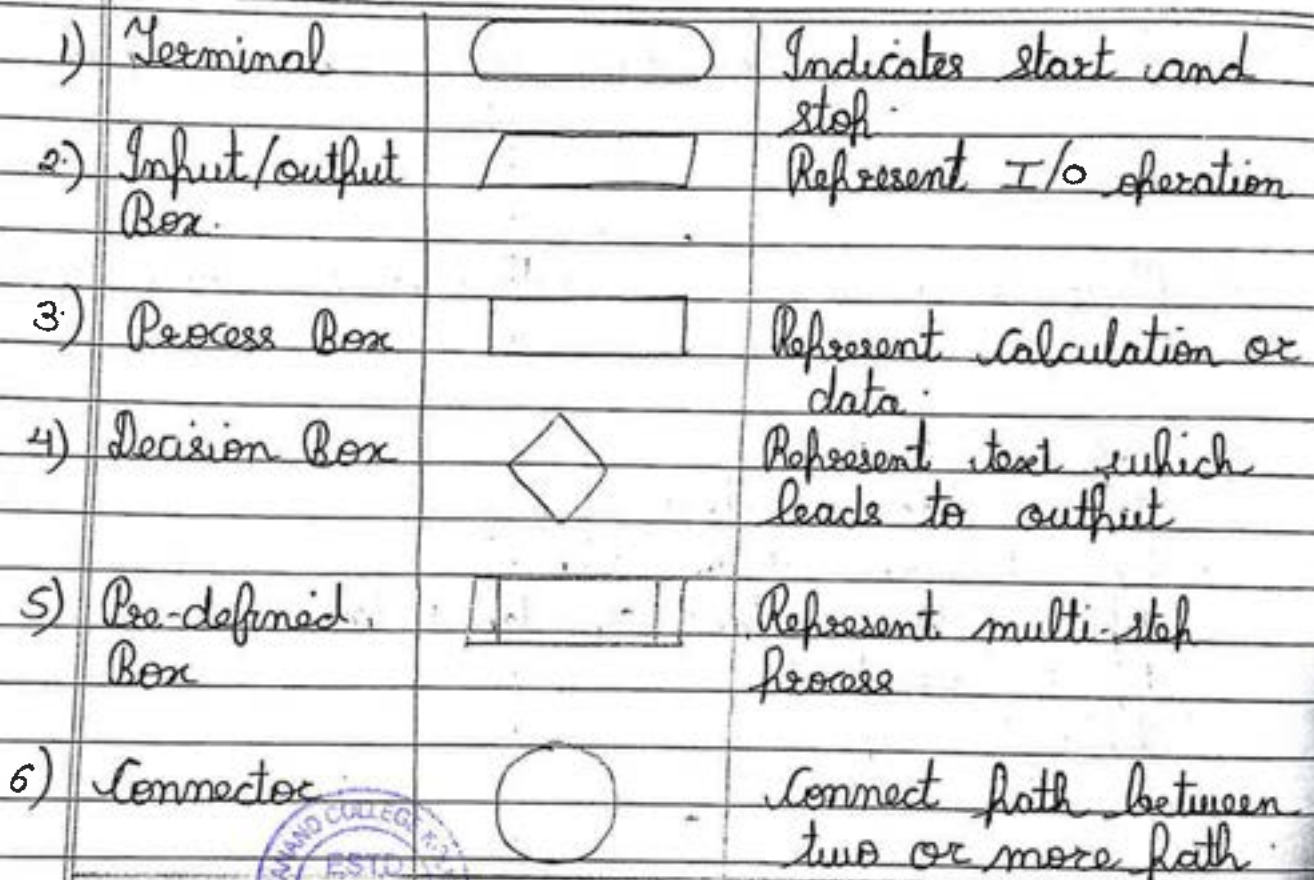 1) Terminal Indicates start and
stop.
2.) Input/output Represent I/O operation
Box.
3.) Process Box Represent Calculation or
data.
4) Decision Box Represent text which
leads to output
5) Pre-defined Represent multi-step
Box process
6) Connector Connect path between
two or more path
ANAND COLLEGE
ESTD